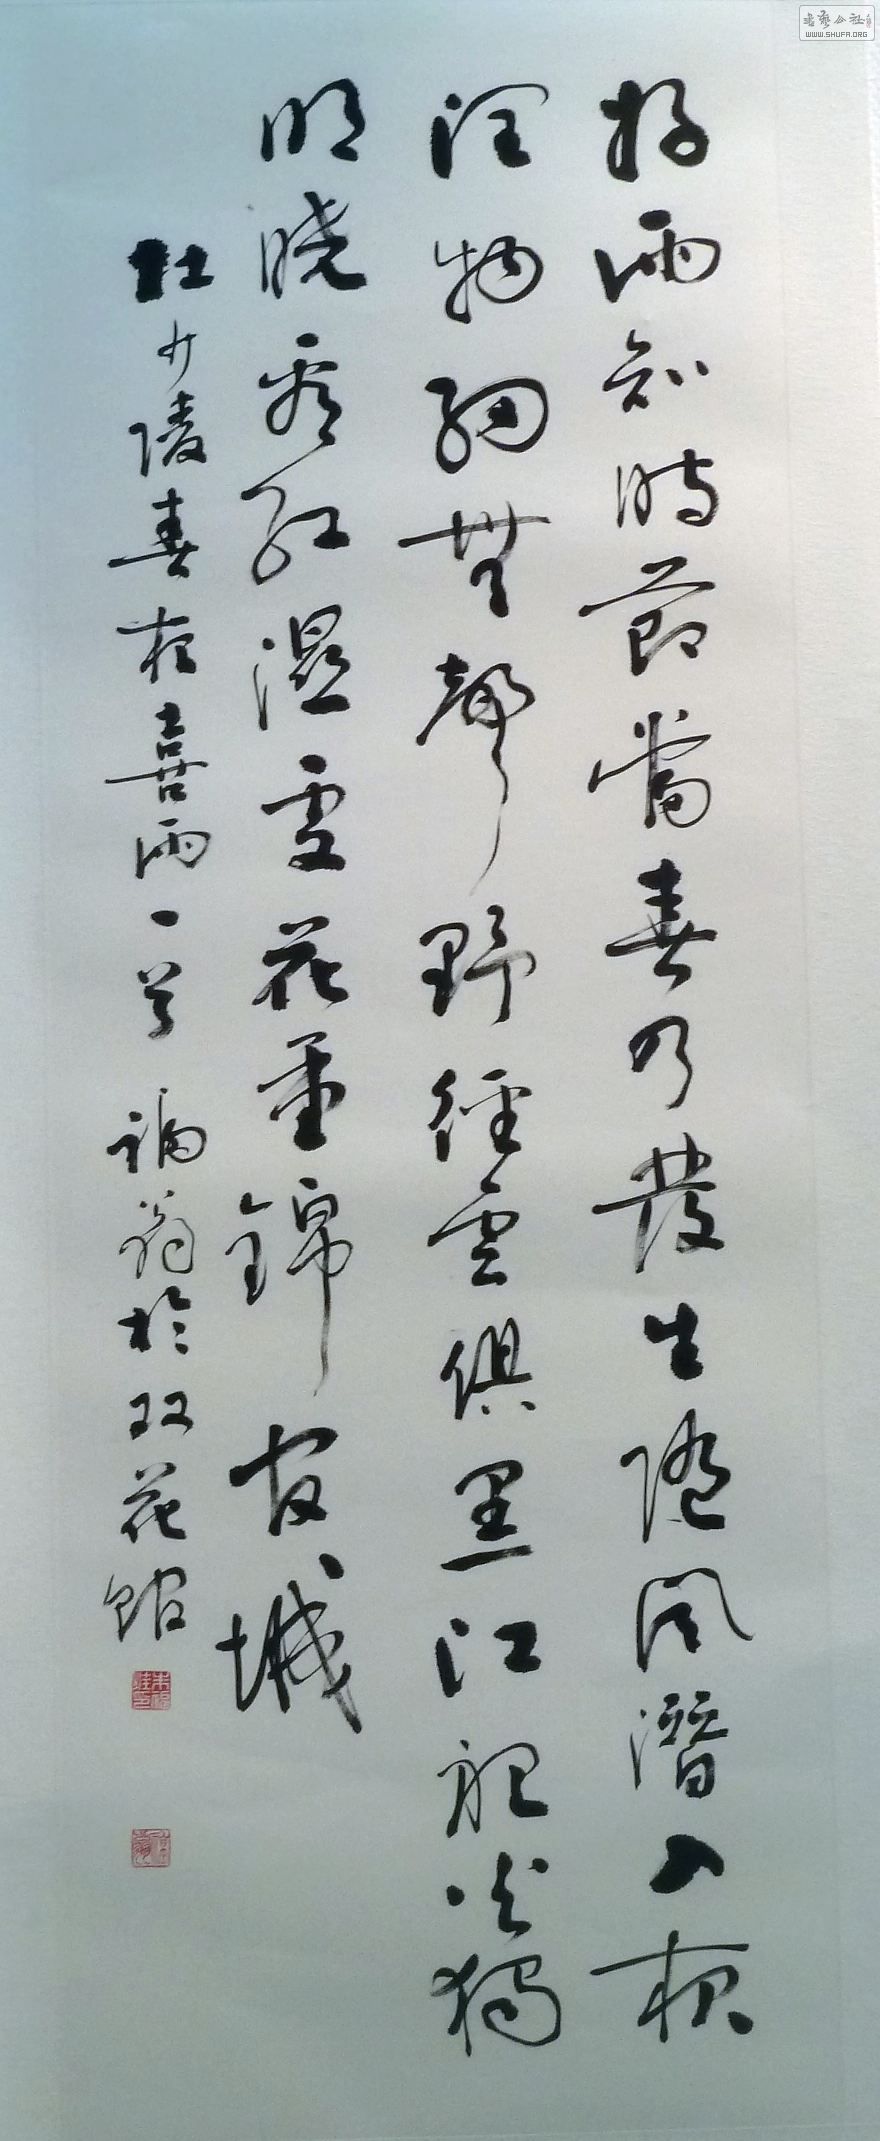 好雨知時節當春乃發生随風潛入夜
潤物細無聲野徑雲俱黑江船火獨
明晓看紅濕處花重錦官城
杜少陵春夜喜雨一首 翁於双花館
书艺公社
WWW.SHUFA.ORG